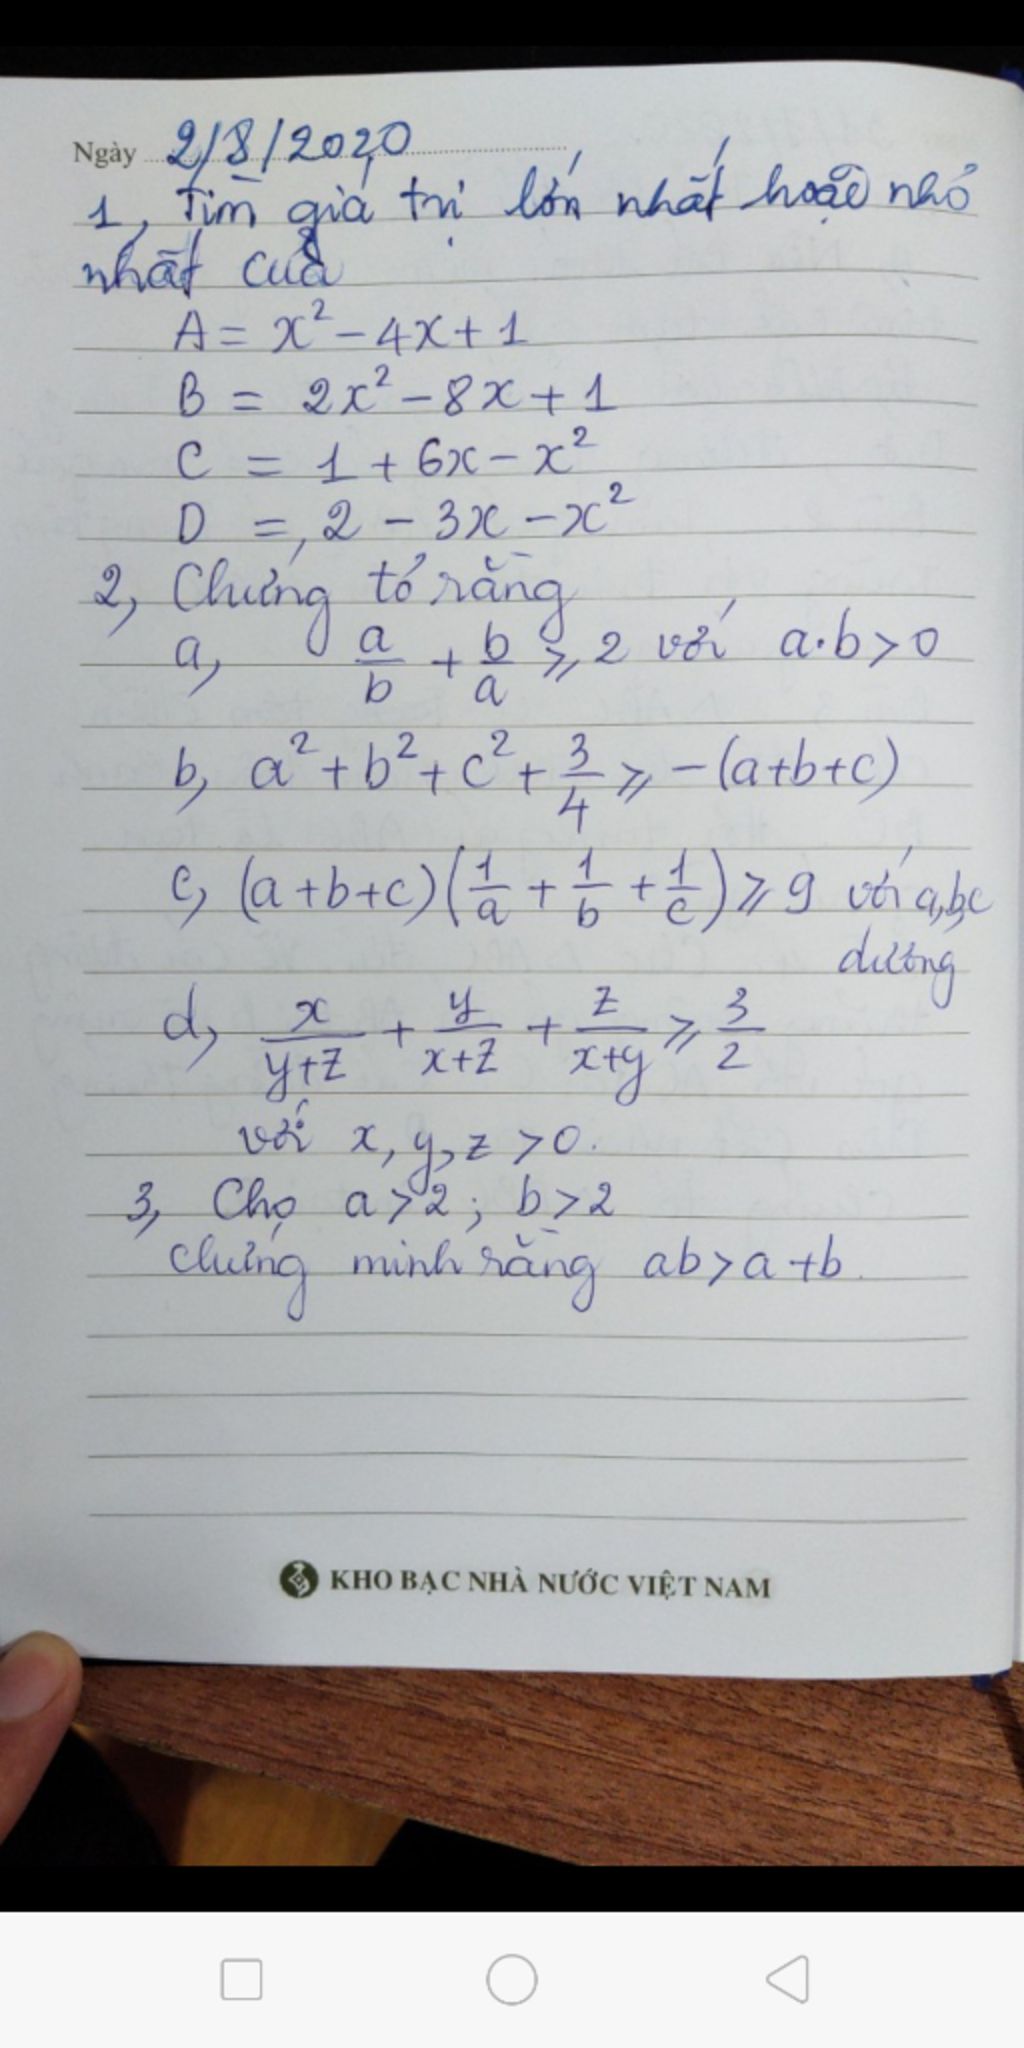 Ngày 2/8/2020
1, Tìm giá trị lớn nhất hoặc nhỏ
nhất của
A = x² - 4x + 1
B = 2x² - 8x + 1
C = 1 + 6x - x²
D = 2 - 3x - x²
2, Chứng tỏ rằng
a, a/b + b/a ⩾ 2 với a.b > 0
b, a² + b² + c² + 3/4 ⩾ -(a+b+c)
c, (a+b+c)(1/a + 1/b + 1/c) ⩾ 9 với a,b,c
dương
d, x/(y+z) + y/(x+z) + z/(x+y) ⩾ 3/2
với x, y, z > 0.
3, Cho a > 2 ; b > 2
chứng minh rằng ab > a + b.
KHO BẠC NHÀ NƯỚC VIỆT NAM